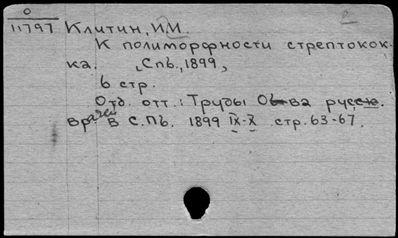 0
11797 Клитин, И.М.
К полиморфности стрептокок-
ка. Спб., 1899,
6 стр.
Отд. отт.: Труды Об-ва русск.
врачей в С.Пб. 1899 IX-X стр. 63-67.